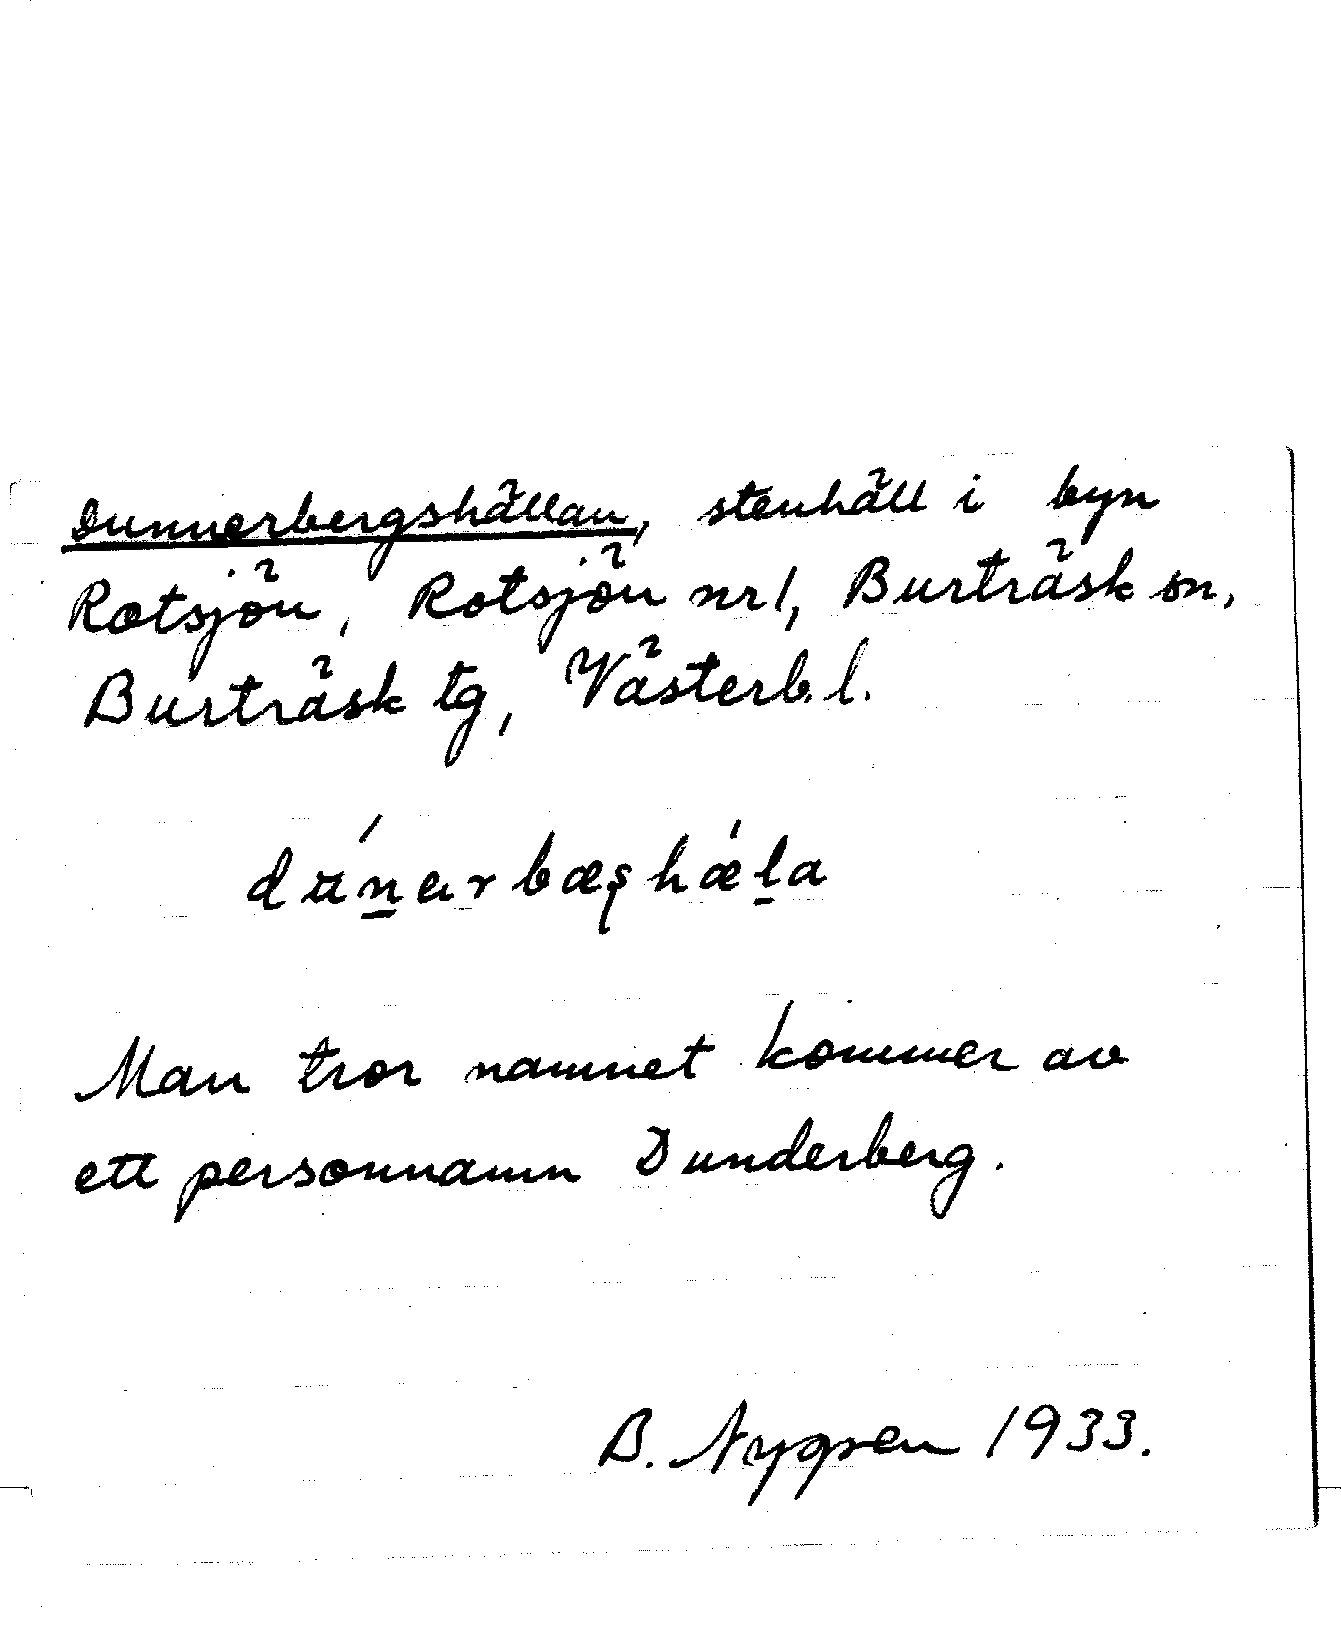 Dunnerbergshällan, stenhäll i byn
Rotsjön, Rotsjön nr 1, Burträsk sn,
Burträsk tg, Västerb. l.
dʉ́n̲ɐrbæʂhǽl̲a
Man tror namnet kommer av
ett personnamn Dunderberg.
B. Nygren 1933.